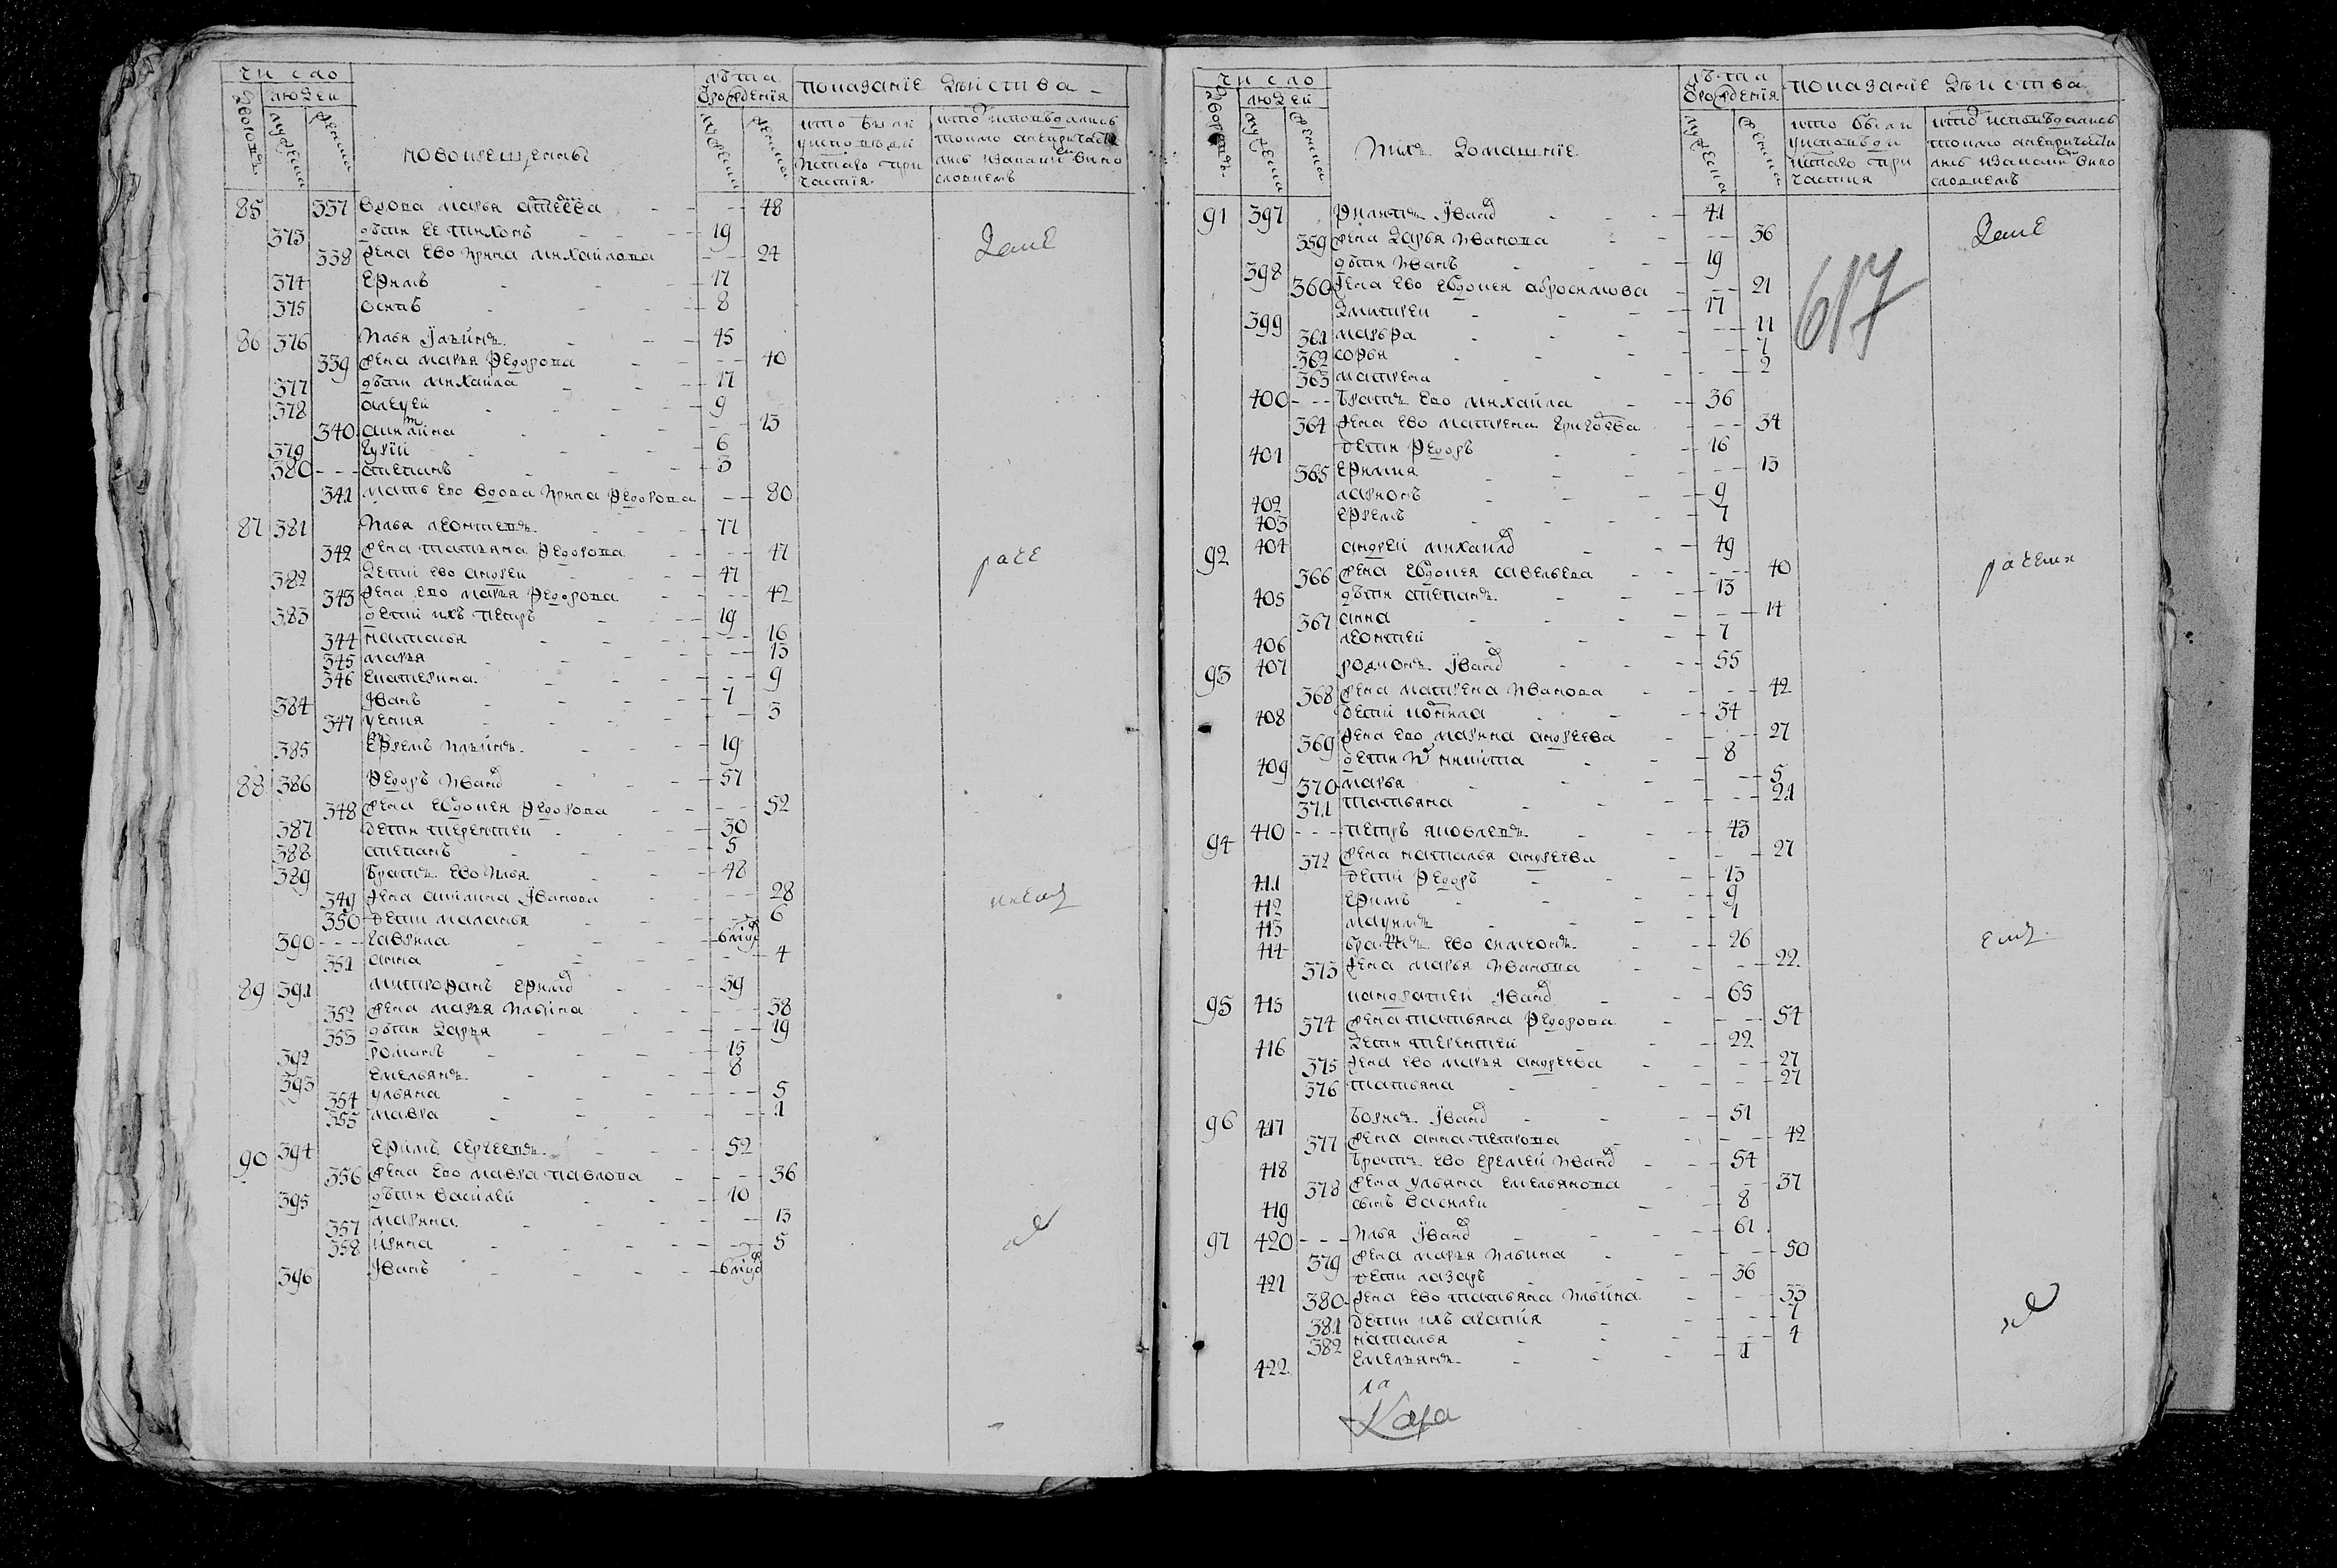 число
людей
дворовъ
мужеска
женска
новокрещены
лѣта
ѿ рождения
мужеска
женска
показанїе дѣиства
кто были
у исповѣди
и стаго при
частия
кто исповѣдались
токмо а не причасти
лись и за каким вино
словием
85 337 вдова марья 48
373 дѣти ее тихонъ 19
338 жена ево ирина михаилова 24
374 ефимъ 17
375 осипъ 8
86 376 илья ильинъ 45
339 жена марья федорова 40
377 дѣти михаила 17
378 алеѯей 9
340 13
379 гурїй 6
380 степанъ 3
341 мать ево вдова ирина федорова 80
87 381 илья леонтевъ 77
342 жена татьяна федорова 47
382 дети ево андрей 47
343 жена ево марья федорова 42
383 дети ихъ петръ 19
344 наталья 16
345 марья 13
346 екатерина 9
384 іванъ 7
347 ѯения 3
385 ефремъ ильинъ 19
88 386 федоръ иванов 57
348 жена евдокея федорова 52
387 дети терентеи 30
388 степанъ 5
389 братъ ево илья 48
349 жена акилина іванова 28
350 дети маланья 6
390 гаврила 6 мцов
351 анна 4
89 391 митрофанъ ефимов 39
352 жена марья ильина 38
353 дѣти дарья 19
392 романъ 15
393 емельянъ 8
354 ульяна 5
355 мавра 1
90 394 ефимъ сергеевъ 52
356 жена ево мавра павлова 36
395 дѣти василей 10
357 марина 13
358 ирина 5
396 іванъ 6 мцов
число
людей
дворовъ
мужеска
женска
ихъ домашнїе
лѣта
ѿ рождения
мужеска
женска
показанїе дѣиства
кто были
у исповѣди
и стаго при
частия
кто исповѣдались
токмо а не причасти
лись и за каким вино
словиемъ
617
91 397 филипъ іванов 41
359 жена дарья иванова 36
398 дѣти иванъ 19
360 жена ево евдокея абросимова 21
399 дмитрей 17
361 марфа 11
362 софья 7
363 матрена 2
400 братъ ево михаила 36
364 жена ево матрена григоева 34
401 дети федоръ 16
365 ефимия 13
402 ларионъ 9
403 ефремъ 7
92 404 андрей михаилов 49
366 жена евдокея савельева 40
405 дѣти степанъ 13
367 анна 14
406 леонтей 7
93 407 родионъ іванов 55
368 жена матрена иванова 42
408 дети корнила 34
369 жена ево марина андреева 27
409 дети их никита 8
370 марья 5
371 татьяна 21
94 410 петръ яковлевъ 43
372 жена наталья андреева 27
411 дети федоръ 13
412 ефимъ 9
413 маѯимъ 1
414 братъ ево симеонъ 26
373 жена марья иванова 22
95 415 кондратей іванов 65
374 жена татьяна федорова 54
416 дети терентей 22
375 жена ево марья андреева 27
376 татьяна 27
96 417 борисъ іванов 51
377 жена анна петрова 42
418 братъ ево еремей иванов 54
378 жена ульяна емельянова 37
419 сынъ василеи 8
97 420 илья іванов 61
379 жена марья ильина 50
421 дети лазарь 36
380 жена ево татьяна ильина 33
381 дети ихъ агапия 7
382 наталья 4
422 емельянъ 1